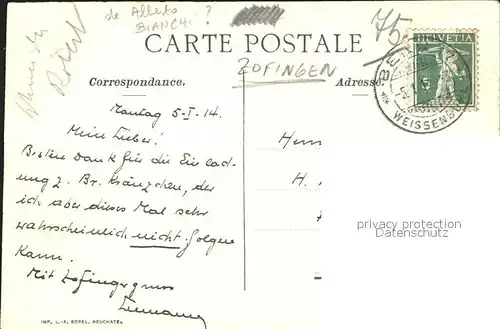 de Alberto ?
BIANCHI
75
CARTE POSTALE
ZOFINGEN
Robert
Correspondance.
Adresse
HELVETIA
5
BERN
WEISSENBÜHL
Montag 5-I-14.
Mein Lieber!
Besten Dank für die Einlad-
ung z. Br. Kränzchen, der
ich aber dieses Mal sehr
wahrscheinlich nicht folgen
kann.
Mit Zofingergruss
Herrn
H.
privacy protection
Datenschutz
IMP. L.-A. BOREL, NEUCHATEL